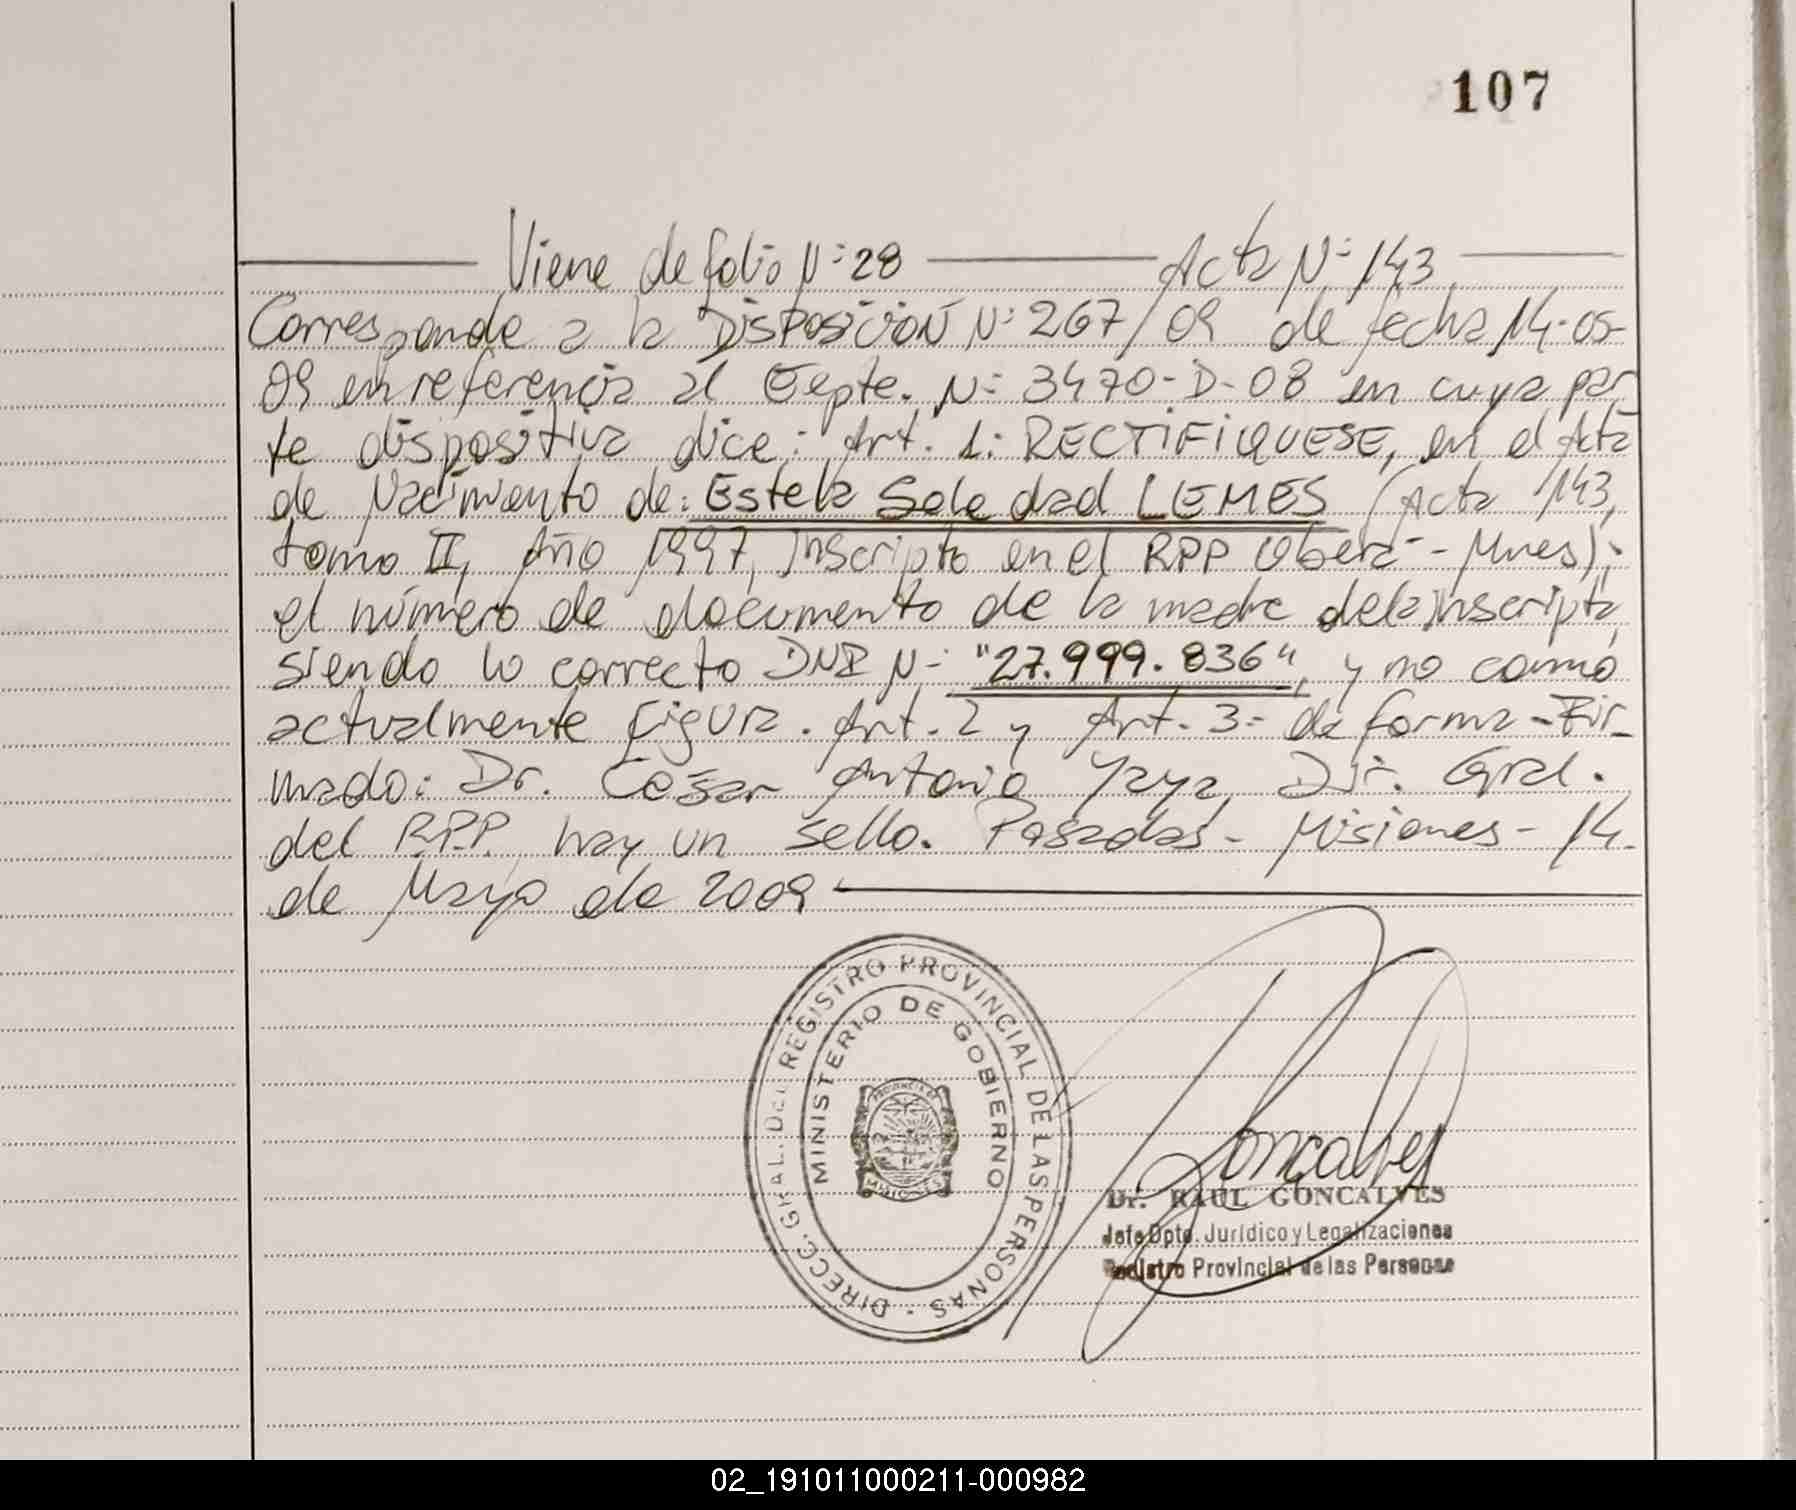 107
Viene de folio N: 28 Acta N: 143
Corresponde a la DISPOSICIÓN N: 267/09 de fecha 14-05-
09 en referencia al Expte. N: 3470-D-08 en cuya par
te dispositiva dice: Art. 1: RECTIFIQUESE, en el Acta
de Nacimiento de: Estela Soledad LEMES (Acta 143,
tomo II, Año 1997, Inscripto en el RPP Oberá - Mnes);
el número de documento de la madre de la inscripta,
siendo lo correcto DNI N- "27.999.836", y no como
actualmente figura. Art. 2 y Art. 3- de forma - Fir_
mado: Dr. César Antonio Yaya, Dir. Gral.
del R.P.P. hay un sello. Posadas - Misiones - 14
de Mayo de 2009
DIRECC. GRAL. DEL REGISTRO PROVINCIAL DE LAS PERSONAS -
MINISTERIO DE GOBIERNO
PROVINCIA DE
MISIONES
Goncalves
Dr. RAUL GONCALVES
Jefe Dpto. Jurídico y Legalizaciones
Registro Provincial de las Personas
02_191011000211-000982